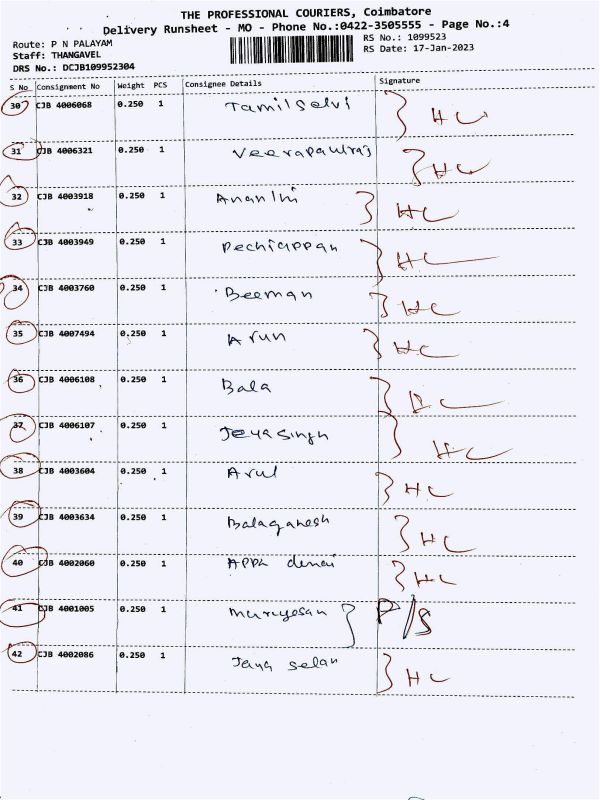 THE PROFESSIONAL COURIERS, Coimbatore
Delivery Runsheet - MO - Phone No.:0422-3505555 - Page No.:4
Route: P N PALAYAM RS No.: 1099523
Staff: THANGAVEL RS Date: 17-Jan-2023
DRS No.: DCJB109952304
S No Consignment No Weight PCS Consignee Details Signature
30 CJB 4006068 0.250 1 Tamilselvi } HC
31 CJB 4006321 0.250 1 Veerapaulraj } HC
32 CJB 4003918 0.250 1 } HC
33 CJB 4003949 0.250 1 Pechiappan } HC
34 CJB 4003760 0.250 1 Beeman } HC
35 CJB 4007494 0.250 1 Arun } HC
36 CJB 4006108 0.250 1 Bala }
37 CJB 4006107 0.250 1 Jeyasingh } HC
38 CJB 4003604 0.250 1 Arul } HC
39 CJB 4003634 0.250 1 Balaganesh } HC
40 CJB 4002060 0.250 1 } HC
41 CJB 4001005 0.250 1 Murugesan } P/S
42 CJB 4002086 0.250 1 Jaya selan } HC